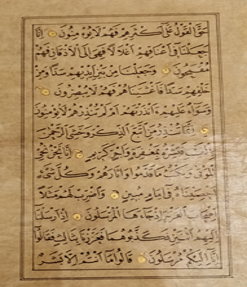 حَقَّ الْقَوْلُ عَلَى أَكْثَرِهِمْ فَهُمْ لَا يُؤْمِنُونَ إِنَّا
جَعَلْنَا فِي أَعْنَاقِهِمْ أَغْلَالًا فَهِيَ إِلَى الْأَذْقَانِ فَهُمْ
مُقْمَحُونَ وَجَعَلْنَا مِنْ بَيْنِ أَيْدِيهِمْ سَدًّا وَمِنْ
خَلْفِهِمْ سَدًّا فَأَغْشَيْنَاهُمْ فَهُمْ لَا يُبْصِرُونَ
وَسَوَاءٌ عَلَيْهِمْ ءَأَنْذَرْتَهُمْ أَمْ لَمْ تُنْذِرْهُمْ لَا يُؤْمِنُونَ
إِنَّمَا تُنْذِرُ مَنِ اتَّبَعَ الذِّكْرَ وَخَشِيَ الرَّحْمٰنَ
بِالْغَيْبِ فَبَشِّرْهُ بِمَغْفِرَةٍ وَأَجْرٍ كَرِيمٍ إِنَّا نَحْنُ نُحْيِ
الْمَوْتَى وَنَكْتُبُ مَا قَدَّمُوا وَآثَارَهُمْ وَكُلَّ شَيْءٍ
أَحْصَيْنَاهُ فِي إِمَامٍ مُبِينٍ وَاضْرِبْ لَهُمْ مَثَلًا
أَصْحَابَ الْقَرْيَةِ إِذْ جَاءَهَا الْمُرْسَلُونَ إِذْ أَرْسَلْنَا
إِلَيْهِمُ اثْنَيْنِ فَكَذَّبُوهُمَا فَعَزَّزْنَا بِثَالِثٍ فَقَالُوا
إِنَّا إِلَيْكُمْ مُرْسَلُونَ قَالُوا مَا أَنْتُمْ إِلَّا بَشَرٌ